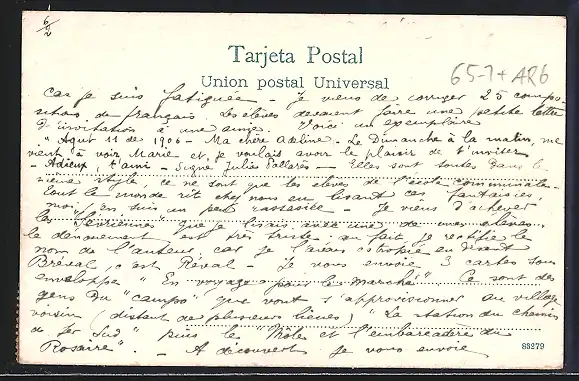 6/2
Tarjeta Postal
Union postal Universal
65-7 + AR6
car je suis fatiguée - Je viens de corriger 25 compo-
sitions de français. Les élèves devaient faire une petite lettre
d'invitation à une amie. Voici un exemplaire
" Aout 11 de 1906 - Ma chère Adeline. Le Dimanche à la matin, me
vient à voir Marie et, je voulais avoir le plaisir de t'inviter
- Adieux t'ami - Signé Julia Pallares - Elles sont toutes dans le
même style, ce ne sont que les élèves de l'école communale.
Tout le monde rit chez nous en lisant ces fantaisies
moi j'en suis un peu - Je viens d'achever
les "Sévriennes" que je lisais avec une de mes élèves
le dénouement est très triste - au fait je rectifie le
nom de l'auteur car je l'avais estropié en disant
Bréval, c'est Réval. Je vous envoie 3 cartes sous
enveloppe " En voyage pour le Marché" Ce sont des
gens du "campo" que vont s'approvisionner au village
voisin (distant de plusieurs lieues) " La station du chemin
de fer Sud" puis le Môles et l'embarcadère du
Rosaire". - A découvert je vous envoie
83279